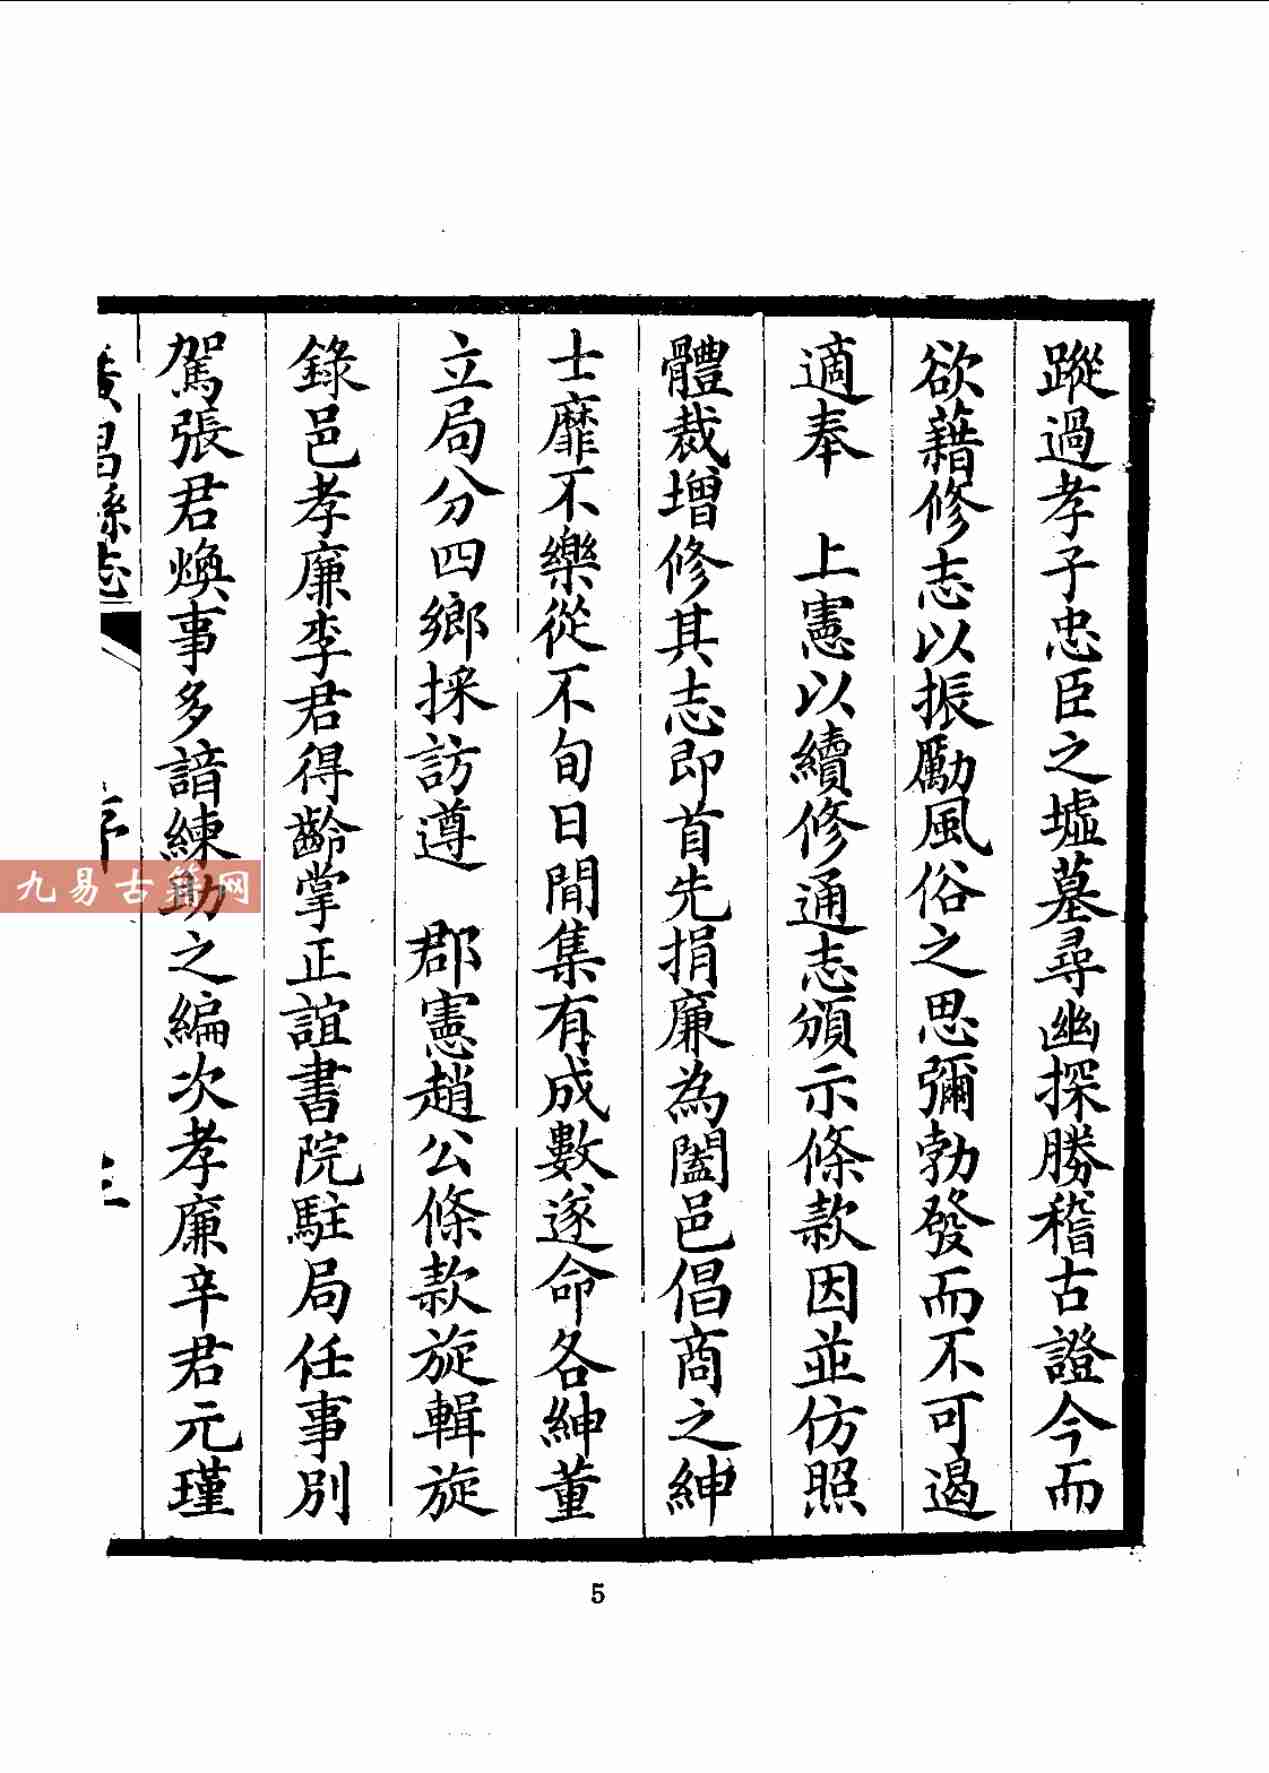 蹤過孝子忠臣之墟墓尋幽探勝稽古證今而
欲藉修志以振勵風俗之思彌勃發而不可遏
適奉 上憲以續修通志頒示條款因並仿照
體裁增修其志即首先捐廉為闔邑倡商之紳
士靡不樂從不旬日間集有成數遂命各紳董
立局分四鄉採訪遵 郡憲趙公條款旋輯旋
錄邑孝廉李君得齡掌正誼書院駐局任事別
駕張君煥事多諳練助之編次孝廉辛君元瑾
昌縣志 序
九易古籍网
5